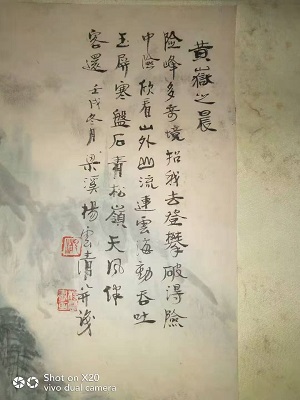 黄嶽之晨
险峰多奇境招我去登攀破得险
中险欣看山外山流连雲海動吞吐
玉屏寒盤石青松嶺天风伴
客還 壬戌冬月 梁溪楊雲清并識
Shot on X20
vivo dual camera